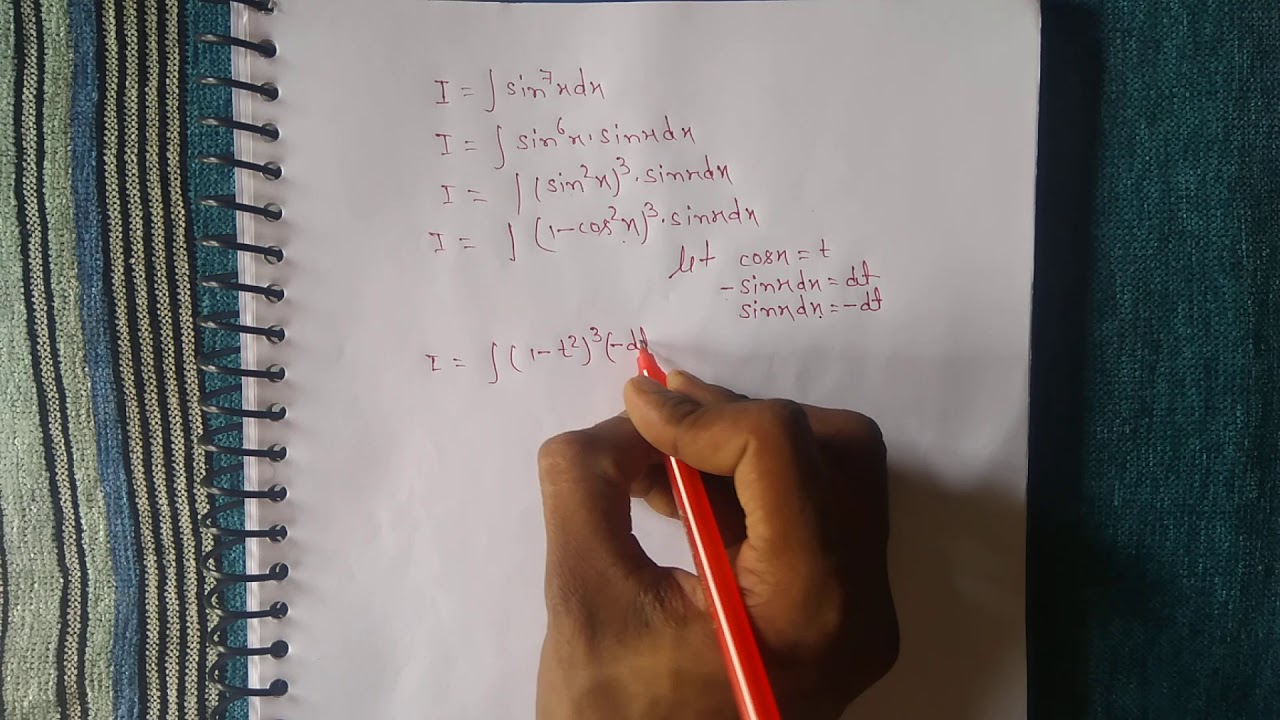 I = ∫ sin⁷x dx
I = ∫ sin⁶x · sinx dx
I = ∫ (sin²x)³ · sinx dx
I = ∫ (1 - cos²x)³ · sinx dx
let cosx = t
- sinx dx = dt
sinx dx = - dt
I = ∫ (1 - t²)³ (- dt